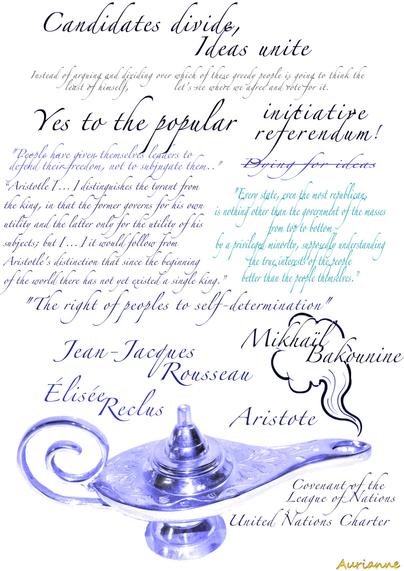 Candidates divide,
Ideas unite
Instead of arguing and dividing over which of these greedy people is going to think the
least of himself, let's see where we agree and vote for it.
Yes to the popular initiative
referendum!
"People have given themselves leaders to
defend their freedom, not to subjugate them.."
Dying for ideas
"Aristotle I... I distinguishes the tyrant from
the king, in that the former governs for his own
utility and the latter only for the utility of his
subjects; but I... I it would follow from
Aristotle's distinction that since the beginning
of the world there has not yet existed a single king."
"Every state, even the most republican,
is nothing other than the government of the masses
from top to bottom
by a privileged minority, supposedly understanding
the true interests of the people
better than the people themselves."
"The right of peoples to self-determination"
Jean-Jacques
Rousseau
Mikhaïl
Bakounine
Élisée
Reclus
Aristote
Covenant of the
League of Nations
United Nations Charter
Aurianne